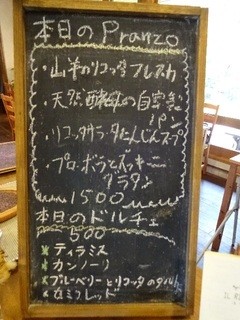 本日のPranzo
・山羊のリコッタ フレスカ
・天然酵母の自家製
パン
・リコッタサラータ にんじんスープ
・プロボラとズッキーニ
グラタン
1500
本日のドルチェ
500
ティラミス
カンノーリ
ブルーベリーとリコッタのタルト
セミフレッド